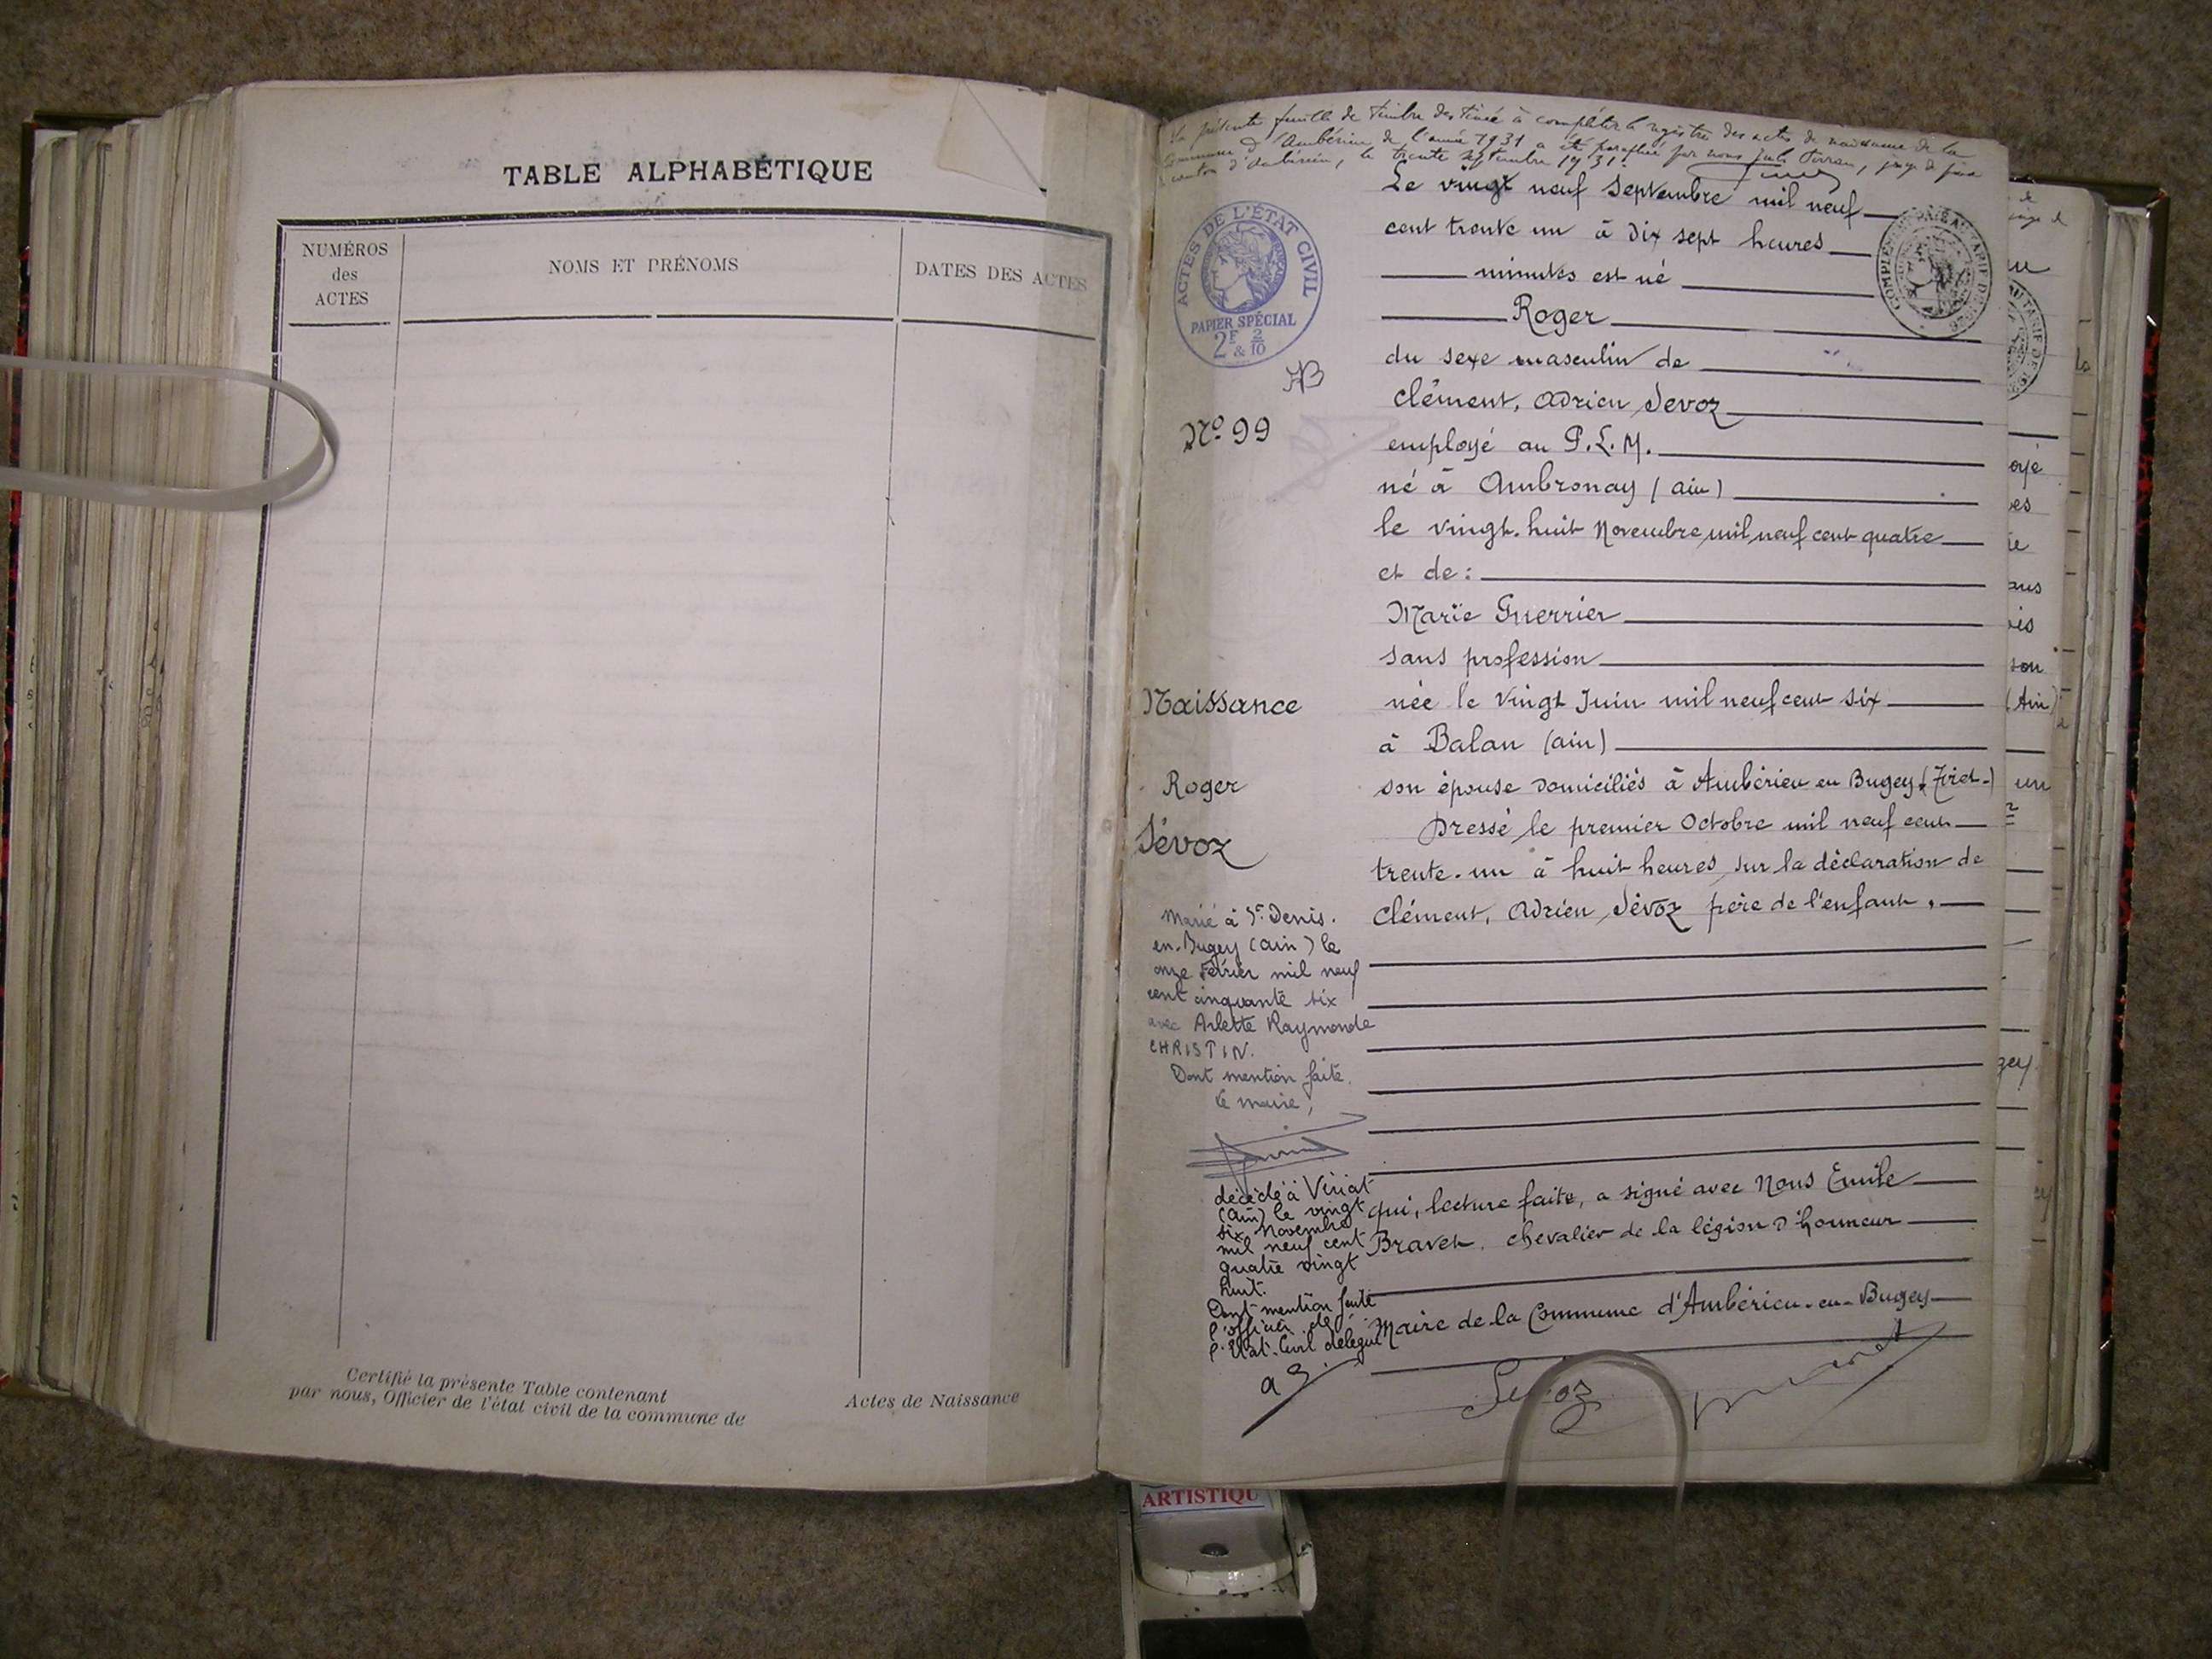 TABLE ALPHABÉTIQUE
NUMÉROS
des
ACTES
NOMS ET PRÉNOMS
DATES DES ACTES
Certifié la présente Table contenant
par nous, Officier de l'état civil de la commune de
Actes de Naissance
La présente feuille de timbre destinée à compléter le registre des actes de naissance de la
commune d'Ambérieu de l'année 1931 a été paraphée par nous juge de paix
canton d'Ambérieu, le trente septembre 1931.
ACTES DE L'ÉTAT CIVIL
PAPIER SPÉCIAL
2F & 2/10
No 99
Naissance
Roger
Sévoz
Marié à St Denis.
en-Bugey (ain) le
onze Février mil neuf
cent cinquante six
avec Arlette Raymonde
CHRISTIN.
Dont mention faite.
Le maire,
décédé à Viriat
(ain) le vingt
six Novembre
mil neuf cent
quatre vingt
huit.
Dont mention faite
l'officier de
l'Etat-Civil délégué
Le vingt neuf Septembre mil neuf
cent trente un à dix sept heures
minutes est né
Roger
du sexe masculin de
Clément, Adrien Sevoz
employé au P.L.M.
né à Ambronay (ain)
le vingt-huit Novembre mil neuf cent quatre
et de :
Marie Guerrier
sans profession
née le vingt Juin mil neuf cent six
à Balan (ain)
son épouse domiciliés à Ambérieu en Bugey (Tiret-)
Dressé le premier Octobre mil neuf cent
trente-un à huit heures, sur la déclaration de
Clément, Adrien Sévoz père de l'enfant.
qui, lecture faite, a signé avec Nous Emile
Bravet. chevalier de la légion d'honneur
Maire de la Commune d'Ambérieu-en-Bugey
Sevoz
Bravet
(Ain)
ARTISTIQU